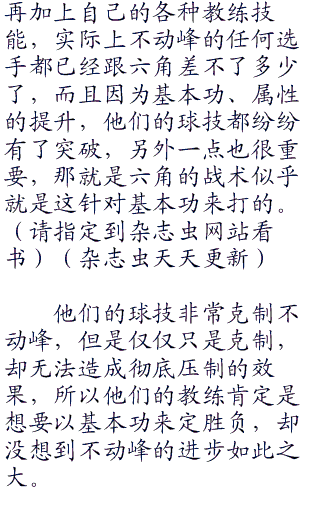 再加上自己的各种教练技
能，实际上不动峰的任何选
手都已经跟六角差不了多少
了，而且因为基本功、属性
的提升，他们的球技都纷纷
有了突破，另外一点也很重
要，那就是六角的战术似乎
就是这针对基本功来打的。
（请指定到杂志虫网站看
书）（杂志虫天天更新）
他们的球技非常克制不
动峰，但是仅仅只是克制，
却无法造成彻底压制的效
果，所以他们的教练肯定是
想要以基本功来定胜负，却
没想到不动峰的进步如此之
大。